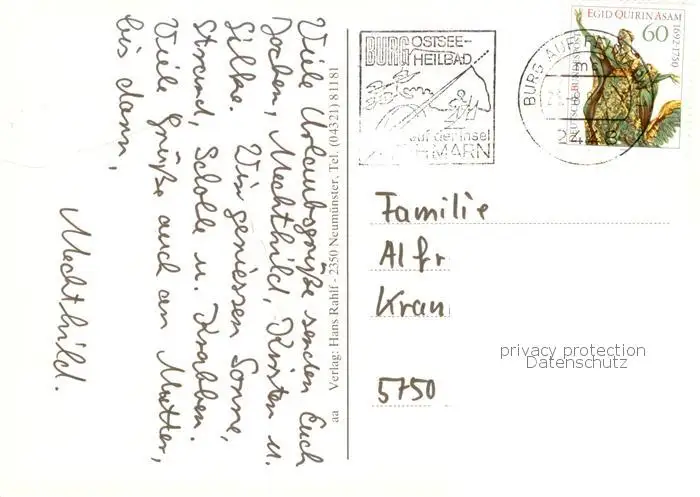 Viele Urlaubsgrüße senden Euch
Jochen, Mechthild, Kirsten u.
Silke. Wir geniessen Sonne,
Strand, Scholle u. Krabben.
Viele Grüße auch an Mutter,
bis dann,
Mechthild.
aa Verlag: Hans Rahlf - 2350 Neumünster, Tel. (04321) 81181
BURG OSTSEE-
HEILBAD
auf der Insel
HMARN
BURG AUF
EGID QUIRIN ASAM
1692-1750
60
DEUTSCHE BUNDESPOST
Familie
Alfr
Kran
5750
privacy protection
Datenschutz